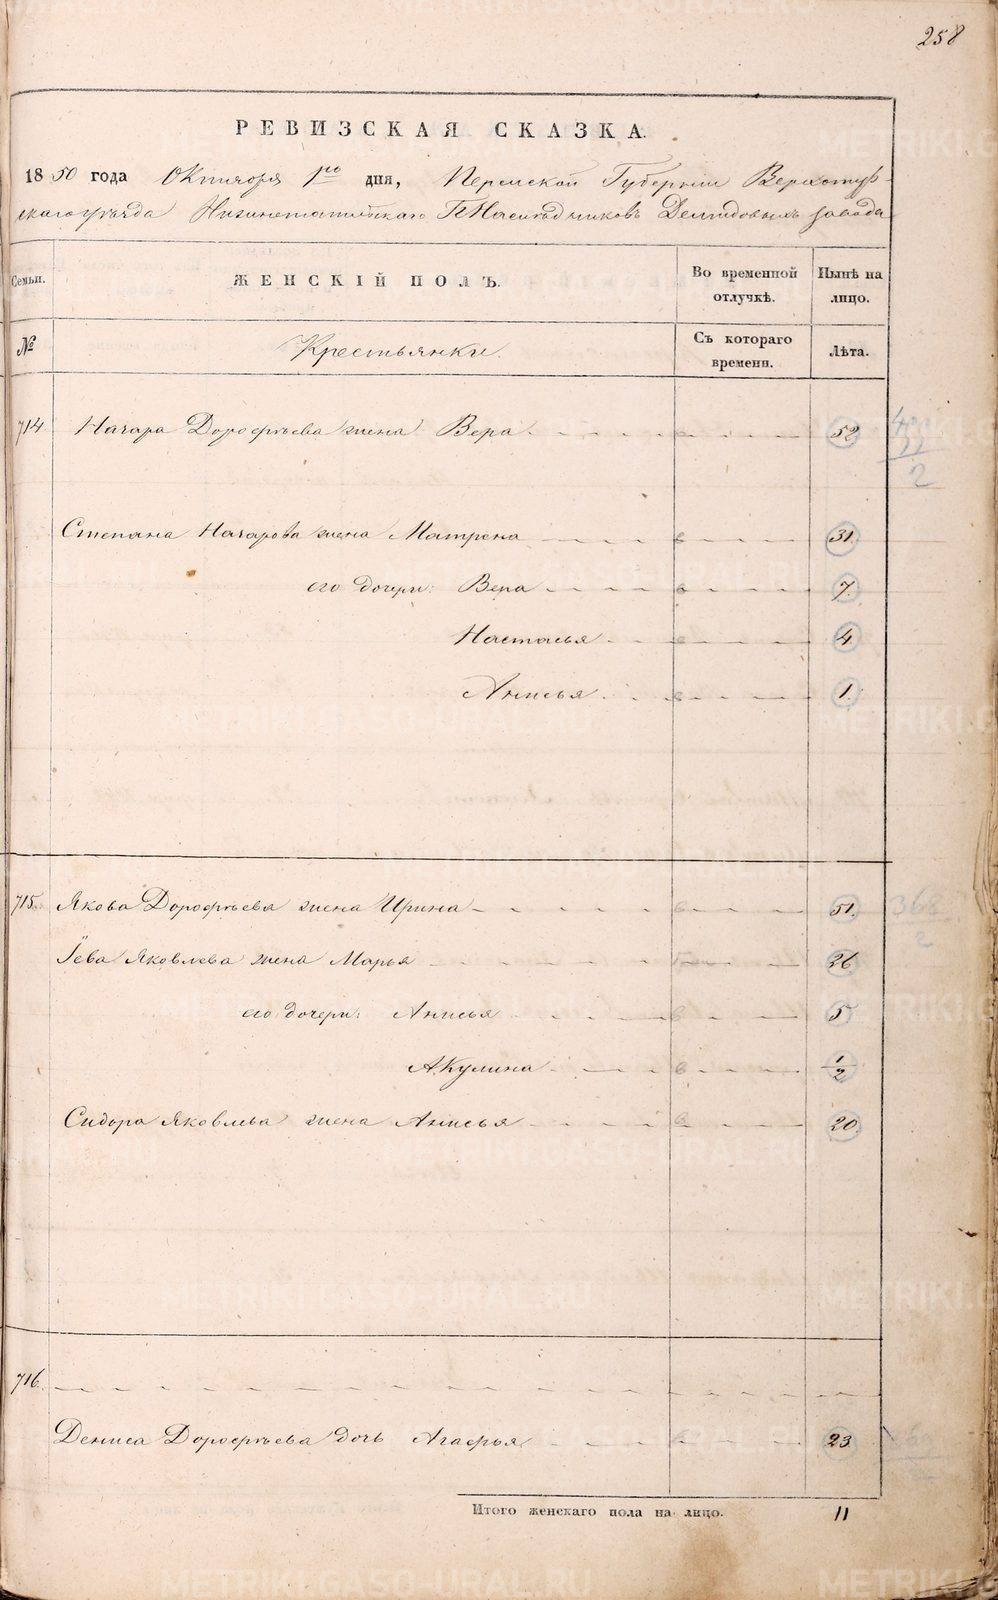 258
РЕВИЗСКАЯ СКАЗКА.
1850 года Октября 1го дня, Пермской Губернии Верхотур-
скаго уезда Нижнетагильскаго Г.Г. Наследниковъ Демидовыхъ завода
Семьи. ЖЕНСКІЙ ПОЛЪ. Во временной отлучкѣ. Нынѣ на лицо.
№ Крестьянки. Съ котораго времени. Лѣта.
714 Назара Дорофѣева жена Вера 52
Степана Назарова жена Матрена 31.
его дочери: Вера 7.
Настасья 4
Анисья 1.
715. Якова Дорофѣева жена Ирина 51.
Іева Яковлева жена Марья 26
его дочери: Анисья 5
Акулина 1/2
Сидора Яковлева жена Анисья 20
716.
Дениса Дорофѣева дочь Агафья 23
Итого женскаго пола на лицо. 11
METRIKI.GASO-URAL.RU